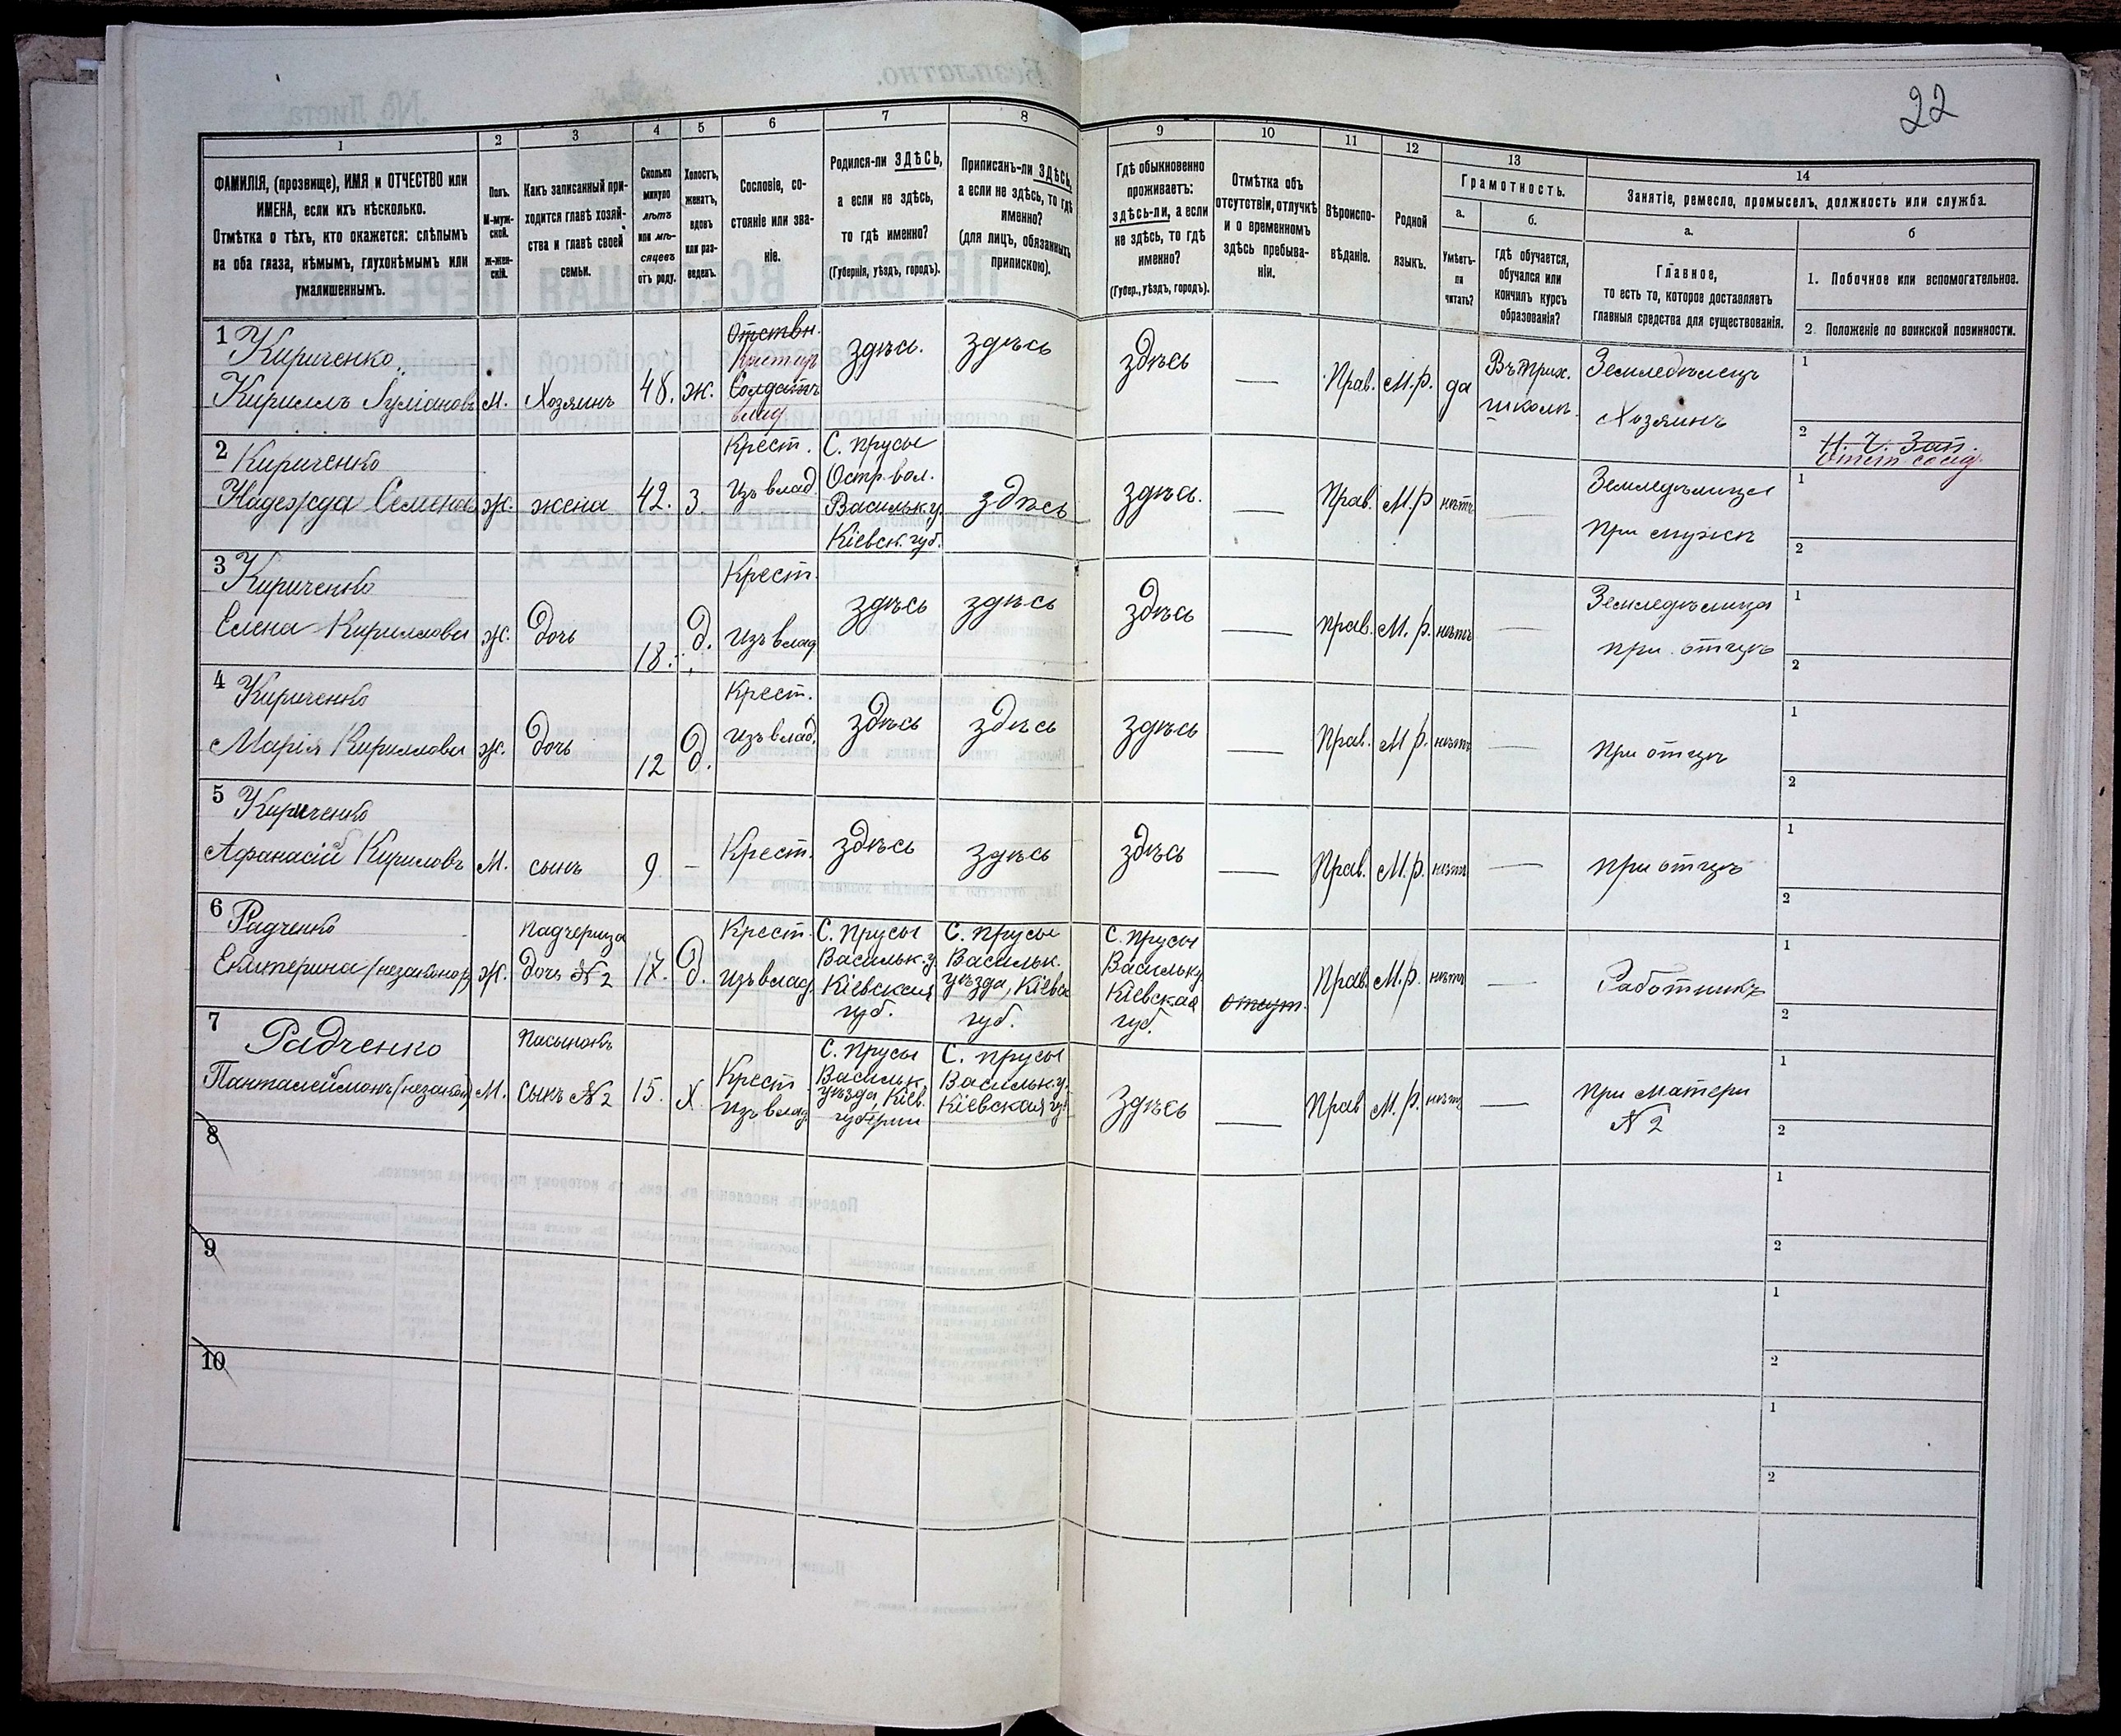 22
1
ФАМИЛІЯ, (прозвище), ИМЯ и ОТЧЕСТВО или
ИМЕНА, если ихъ нѣсколько.
Отмѣтка о тѣхъ, кто окажется: слѣпымъ
на оба глаза, нѣмымъ, глухонѣмымъ или
умалишеннымъ.
2
Полъ.
М-муж-
ской.
Ж-жен-
скій.
3
Какъ записанный при-
ходится главѣ хозяй-
ства и главѣ своей
семьи.
4
Сколько
минуло
лѣтъ
или мѣ-
сяцевъ
отъ роду.
5
Холостъ,
женатъ,
вдовъ
или раз-
веденъ.
6
Сословіе, со-
стояніе или зва-
ніе.
7
Родился-ли ЗДѢСЬ,
а если не здѣсь,
то гдѣ именно?
(Губернія, уѣздъ, городъ).
8
Приписанъ-ли ЗДѢСЬ,
а если не здѣсь, то гдѣ
именно?
(для лицъ, обязанныхъ
припискою).
9
Гдѣ обыкновенно
проживаетъ:
здѣсь-ли, а если
не здѣсь, то гдѣ
именно?
(Губер., уѣздъ, городъ).
10
Отмѣтка объ
отсутствіи, отлучкѣ
и о временномъ
здѣсь пребыва-
ніи.
11
Вѣроиспо-
вѣданіе.
12
Родной
языкъ.
13
Грамотность.
а.
Умѣетъ-
ли
читать?
б.
гдѣ обучается,
обучался или
кончилъ курсъ
образованія?
14
Занятіе, ремесло, промыселъ, должность или служба.
а.
Главное,
то есть то, которое доставляетъ
главныя средства для существованія.
б
1. Побочное или вспомогательное.
2. Положеніе по воинской повинности.
1 Кириченко
Кириллъ
М.
Хозяинъ
48.
ж.
Солдатъ
здѣсь.
здѣсь
здѣсь
—
Прав.
М.р.
да
Въ прих.
школѣ.
Земледѣлецъ
Хозяинъ
1
2
Н. Ч. Зап.
2 Кириченко
Надежда Семенова
ж.
жена
42.
з.
Крест.
Изъ влад.
С. Прусы
Остр. вол.
Васильк. у.
Кіевск. губ.
здѣсь
здѣсь.
—
Прав.
М.р
нѣтъ
—
Земледѣлица
При мужѣ
1
2
3 Кириченко
Елена Кириллова
ж.
дочь
18.
д.
Крест.
изъ влад.
здѣсь
здѣсь
здѣсь
—
прав.
М. р.
нѣтъ
—
Земледѣлица
при отцѣ
1
2
4 Кириченко
Марія Кириллова
ж.
дочь
12
д.
Крест.
изъ влад.
здѣсь
здѣсь
здѣсь
—
Прав.
М р.
нѣтъ
—
при отцѣ
1
2
5 Кириченко
Афанасій Кириловъ
М.
сынъ
9
-
Крест.
здѣсь
здѣсь
здѣсь
—
Прав.
М.р.
нѣтъ
—
при отцѣ
1
2
6 Радченко
Екатерина
ж.
падчерица
дочь № 2
17.
д.
Крест.
изъ влад.
С. Прусы
Васильк. у.
Кіевская
губ.
С. Прусы
Васильк.
уѣзда, Кіевск
губ.
С. Прусы
Васильк у
Кіевская
губ.
отсут.
Прав.
М.р.
нѣтъ
—
1
2
7 Радченко
Панталеймонъ
М.
пасынокъ
сынъ № 2
15.
х.
Крест
изъ влад.
С. Прусы
Васильк.
уѣзда, Кіев.
губерніи
С. Прусы
Васильк. у.
Кіевская губ
здѣсь
—
Прав
М. р.
нѣтъ
—
при матери
№ 2
1
2
8
1
2
9
1
2
10
1
2